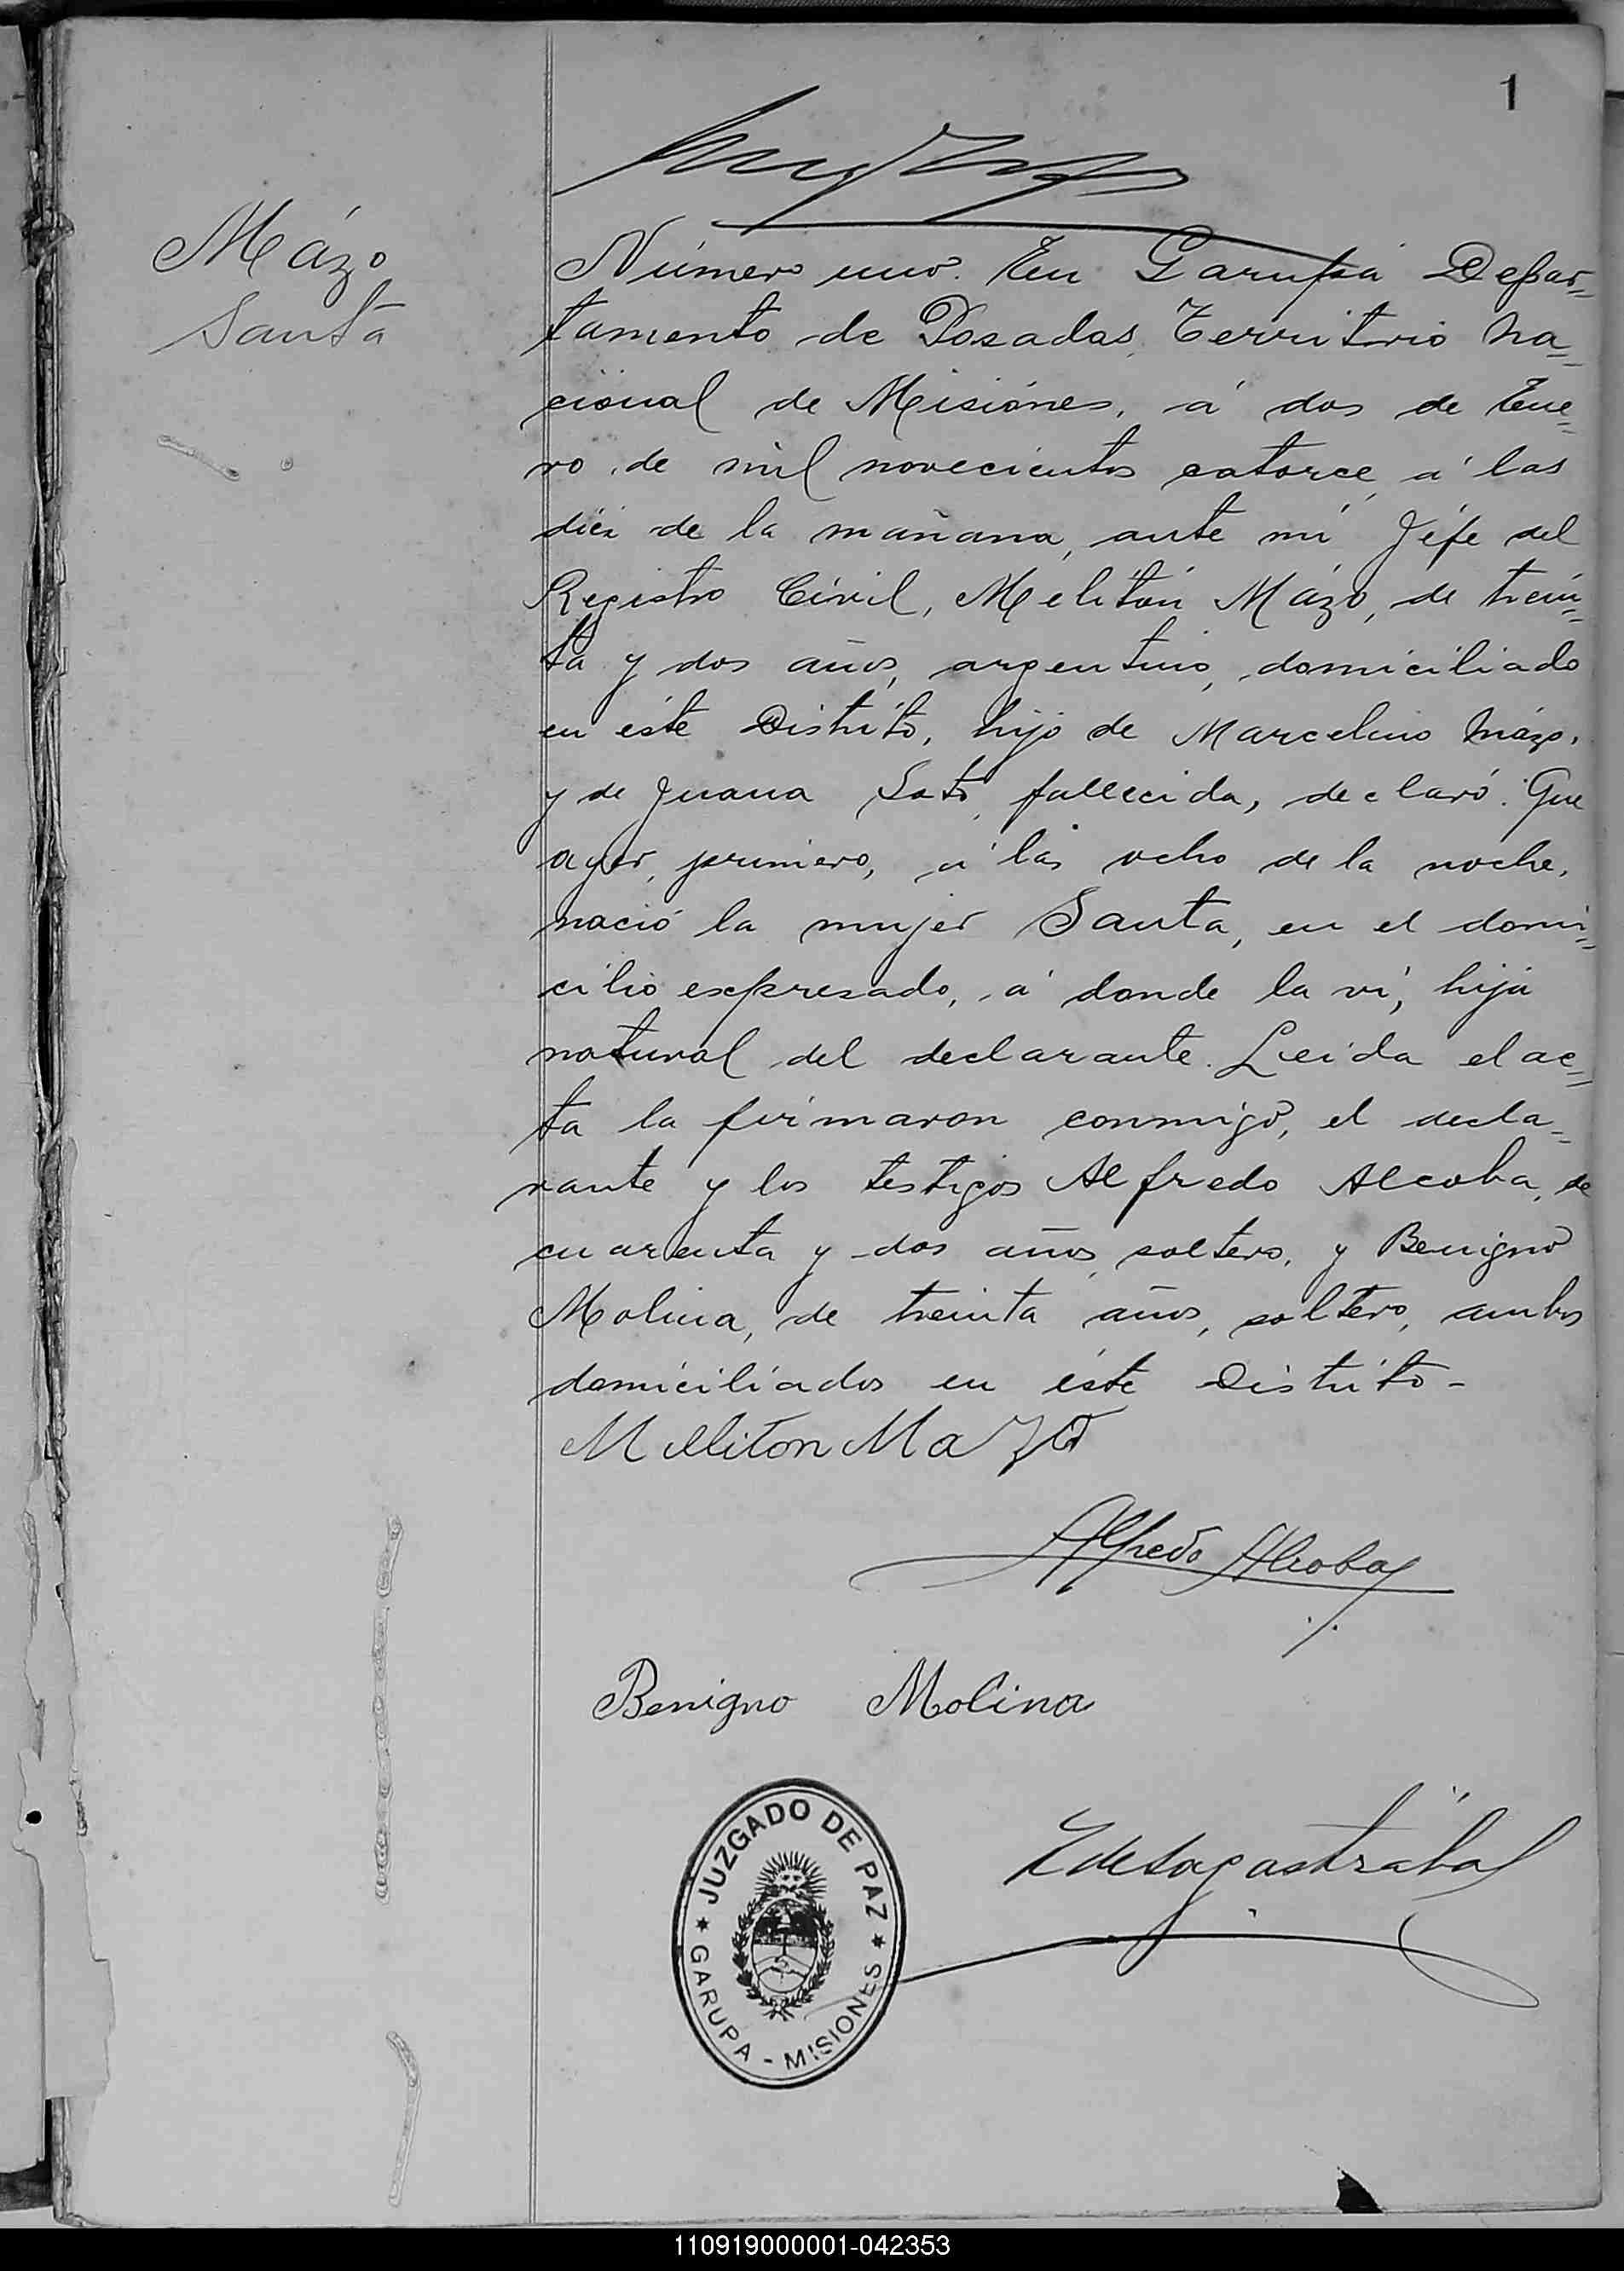 1
Mázo
Santa
Número uno. En Garupá Depar=
tamento de Posadas, Territorio Na=
cional de Misiónes, á dos de Ene=
ro de mil novecientos catorce, á las
diéz de la mañana, ante mí Jéfe del
Registro Cívil, Melitón Mázo, de trein=
ta y dos años, argentino, domiciliado
en éste Distríto, hijo de Marcelino Mázo,
y de Juana Soto, fallecida, declaró: Que
ayer, primero, á las ocho de la noche,
nació la mujer Santa, en el domi=
cilio expresado, á donde la ví, hija
natural del declarante. Leida el ac=
ta la firmaron conmigo, el decla=
rante y los testigos Alfredo Alcoba, de
cuarenta y dos años, soltero, y Benigno
Molina, de treinta años, soltero, ambos
domiciliados en éste Distríto-
Meliton Mazo
Alfredo Alcoba
Benigno Molina
JUZGADO DE PAZ
GARUPA - MISIONES
110919000001-042353